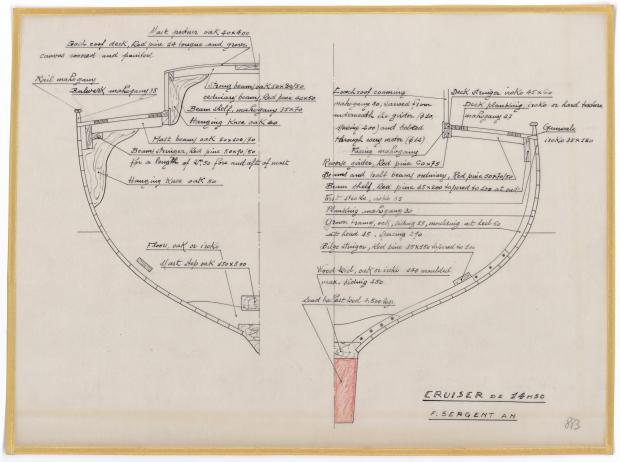 Mast pedner oak 40x400
Coach roof deck, Red pine 24 tongue and groove
canvas covered and painted
Rail mahogany
Bulwark mahogany 38
Strong beam, oak 50x70/50
ordinary beams, Red pine 40x50
Beam shelf, mahogany 35x70
Hanging knee oak 40
Mast beams oak 50x100/70
Beam Stringer, Red pine 50x70/50
for a length of 4m50 fore and aft of mast
Hanging knee oak 50
Floors, oak or iroko
Mast step oak 150x300
Coach roof coaming
mahogany 30, screwed from
underneath the girder
spacing 200 and bolted
through every meter
Facing mahogany
Reverse girder, Red pine 50x75
Beams and half beams ordinary, Red pine 50x70/50
Beam shelf, Red pine 35x200 tapered to 100 at ends
Planking mahogany 30
Grown frame, oak, siding 35, moulding at heel 50
at head 35, spacing 290
Bilge stringer, Red pine 35x150 tapered to 100
Wood keel, oak or iroko 140 moulded
max. siding 450
Lead ballast keel 4.500 kgs
Deck stringer iroko 45x60
Deck planking, iroko or hard texture
mahogany 27
Gunwale
iroko 35x180
CRUISER DE 14M50
F. SERGENT AN
883